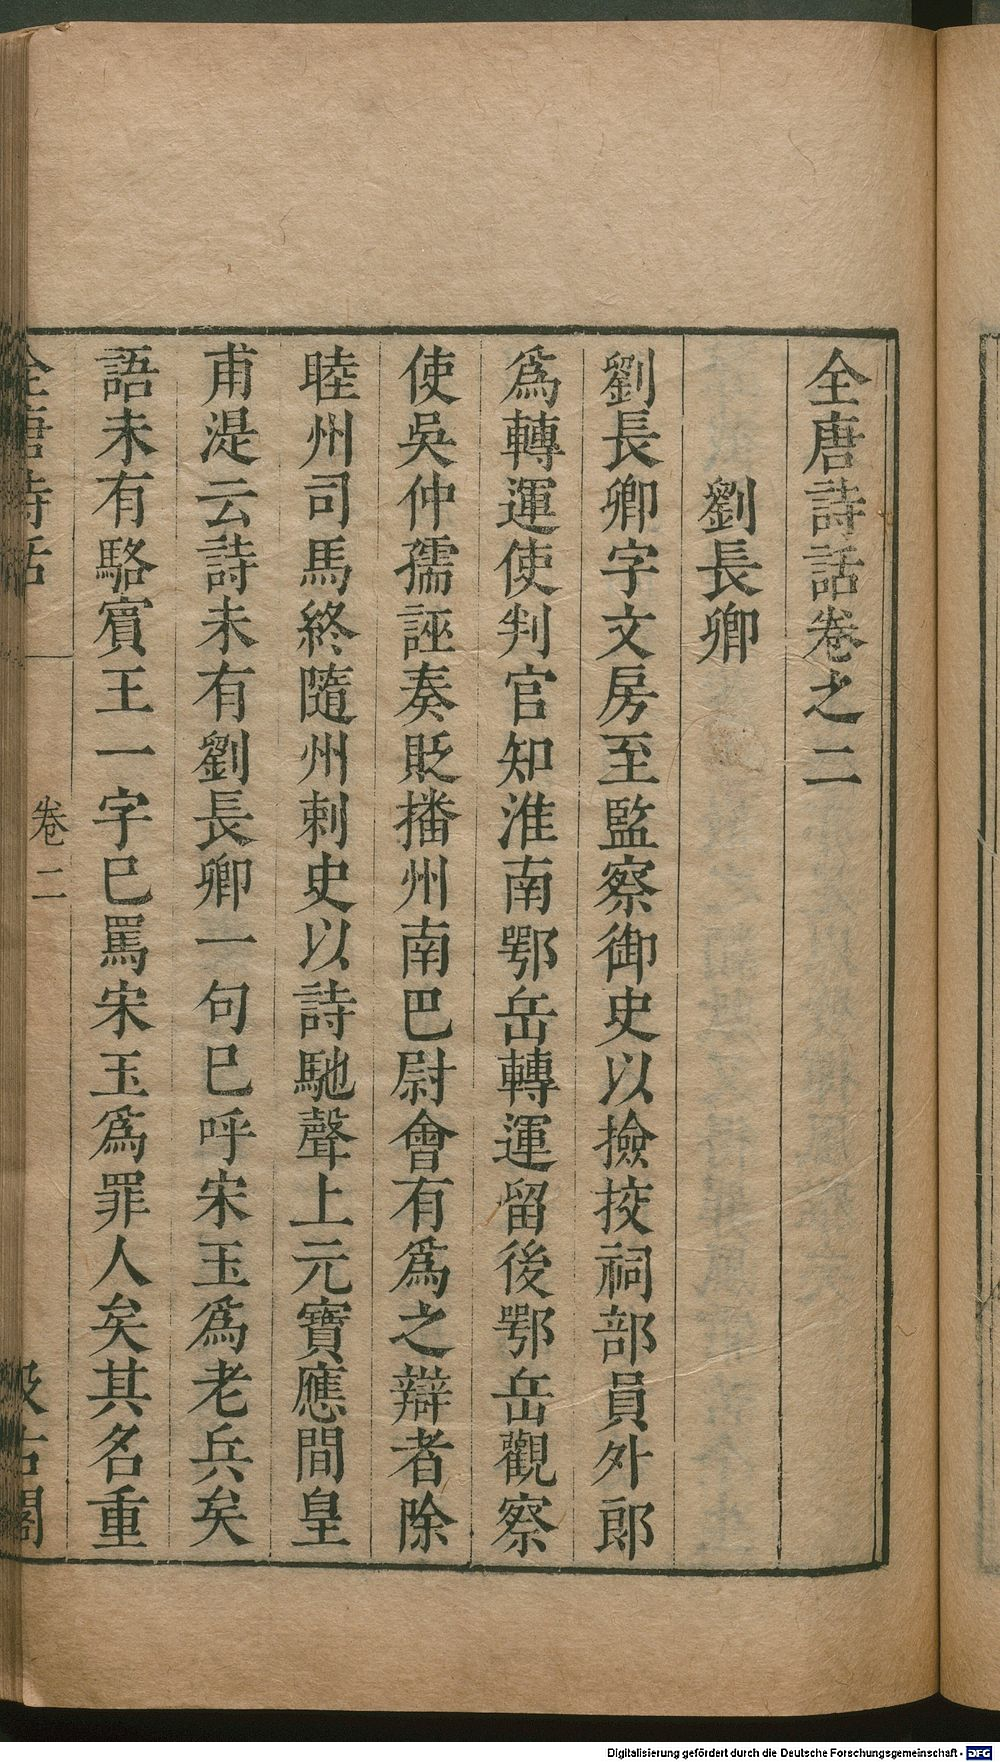 全唐詩話卷之二
劉長卿
劉長卿字文房至監察御史以撿挍祠部員外郎
爲轉運使判官知淮南鄂岳轉運留後鄂岳觀察
使吳仲孺誣奏貶播州南巴尉會有爲之辯者除
睦州司馬終隨州剌史以詩馳聲上元寶應間皇
甫湜云詩未有劉長卿一句巳呼宋玉爲老兵矣
語未有駱賓王一字巳罵宋玉爲罪人矣其名重
全唐詩話 卷二 汲古閣
Digitalisierung gefördert durch die Deutsche Forschungsgemeinschaft - DFG